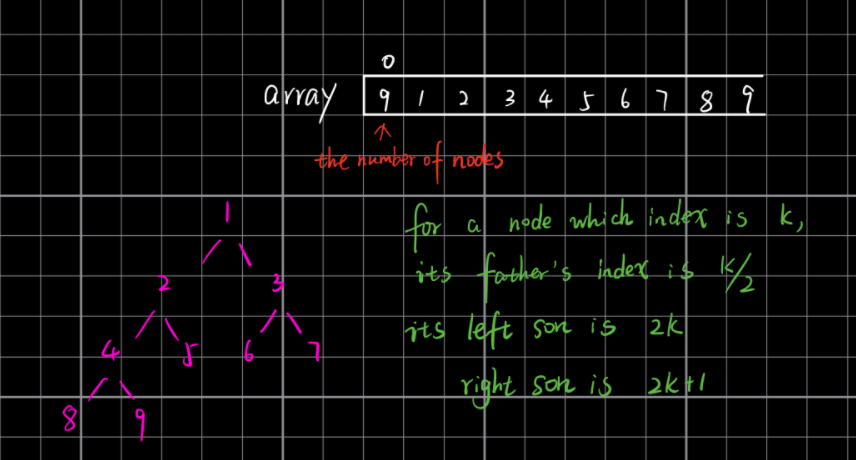 0
array 9 1 2 3 4 5 6 7 8 9
the number of nodes
for a node which index is k,
its father's index is k/2
its left son is 2k
right son is 2k+1
1
2 3
4 5 6 7
8 9